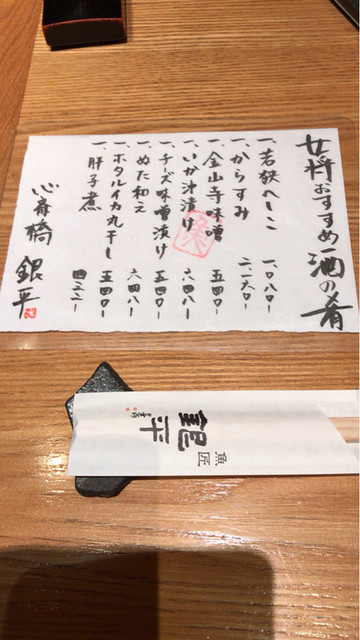 女将おすすめ酒の肴
一、若狭へしこ 一、〇八〇ー
一、からすみ 二、一六〇ー
一、金山寺味噌 五四〇ー
一、いか沖漬け 六四八ー
一、チーズ味噌漬け 五四〇ー
一、ぬた和え 六四八ー
一、ホタルイカ丸干し 五四〇ー
一、肝子煮 四三二ー
心斎橋 銀平
魚匠
銀平